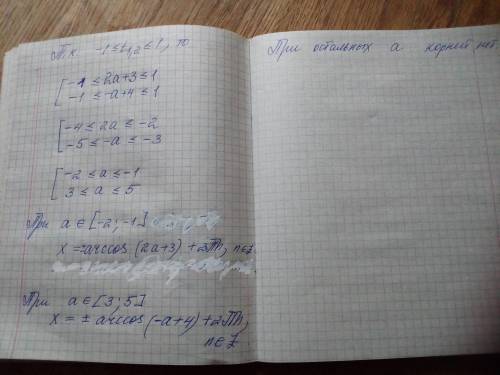 Т.к. -1 ≤ t₁,₂ ≤ 1, то
[ -1 ≤ 2a+3 ≤ 1
-1 ≤ -a+4 ≤ 1
[ -4 ≤ 2a ≤ -2
-5 ≤ -a ≤ -3
[ -2 ≤ a ≤ -1
3 ≤ a ≤ 5
При a ∈ [-2; -1]
x = arccos (2a+3) + 2πn, n∈Z
При a ∈ [3; 5]
x = ± arccos (-a+4) + 2πn,
n∈Z
При остальных a корней нет.